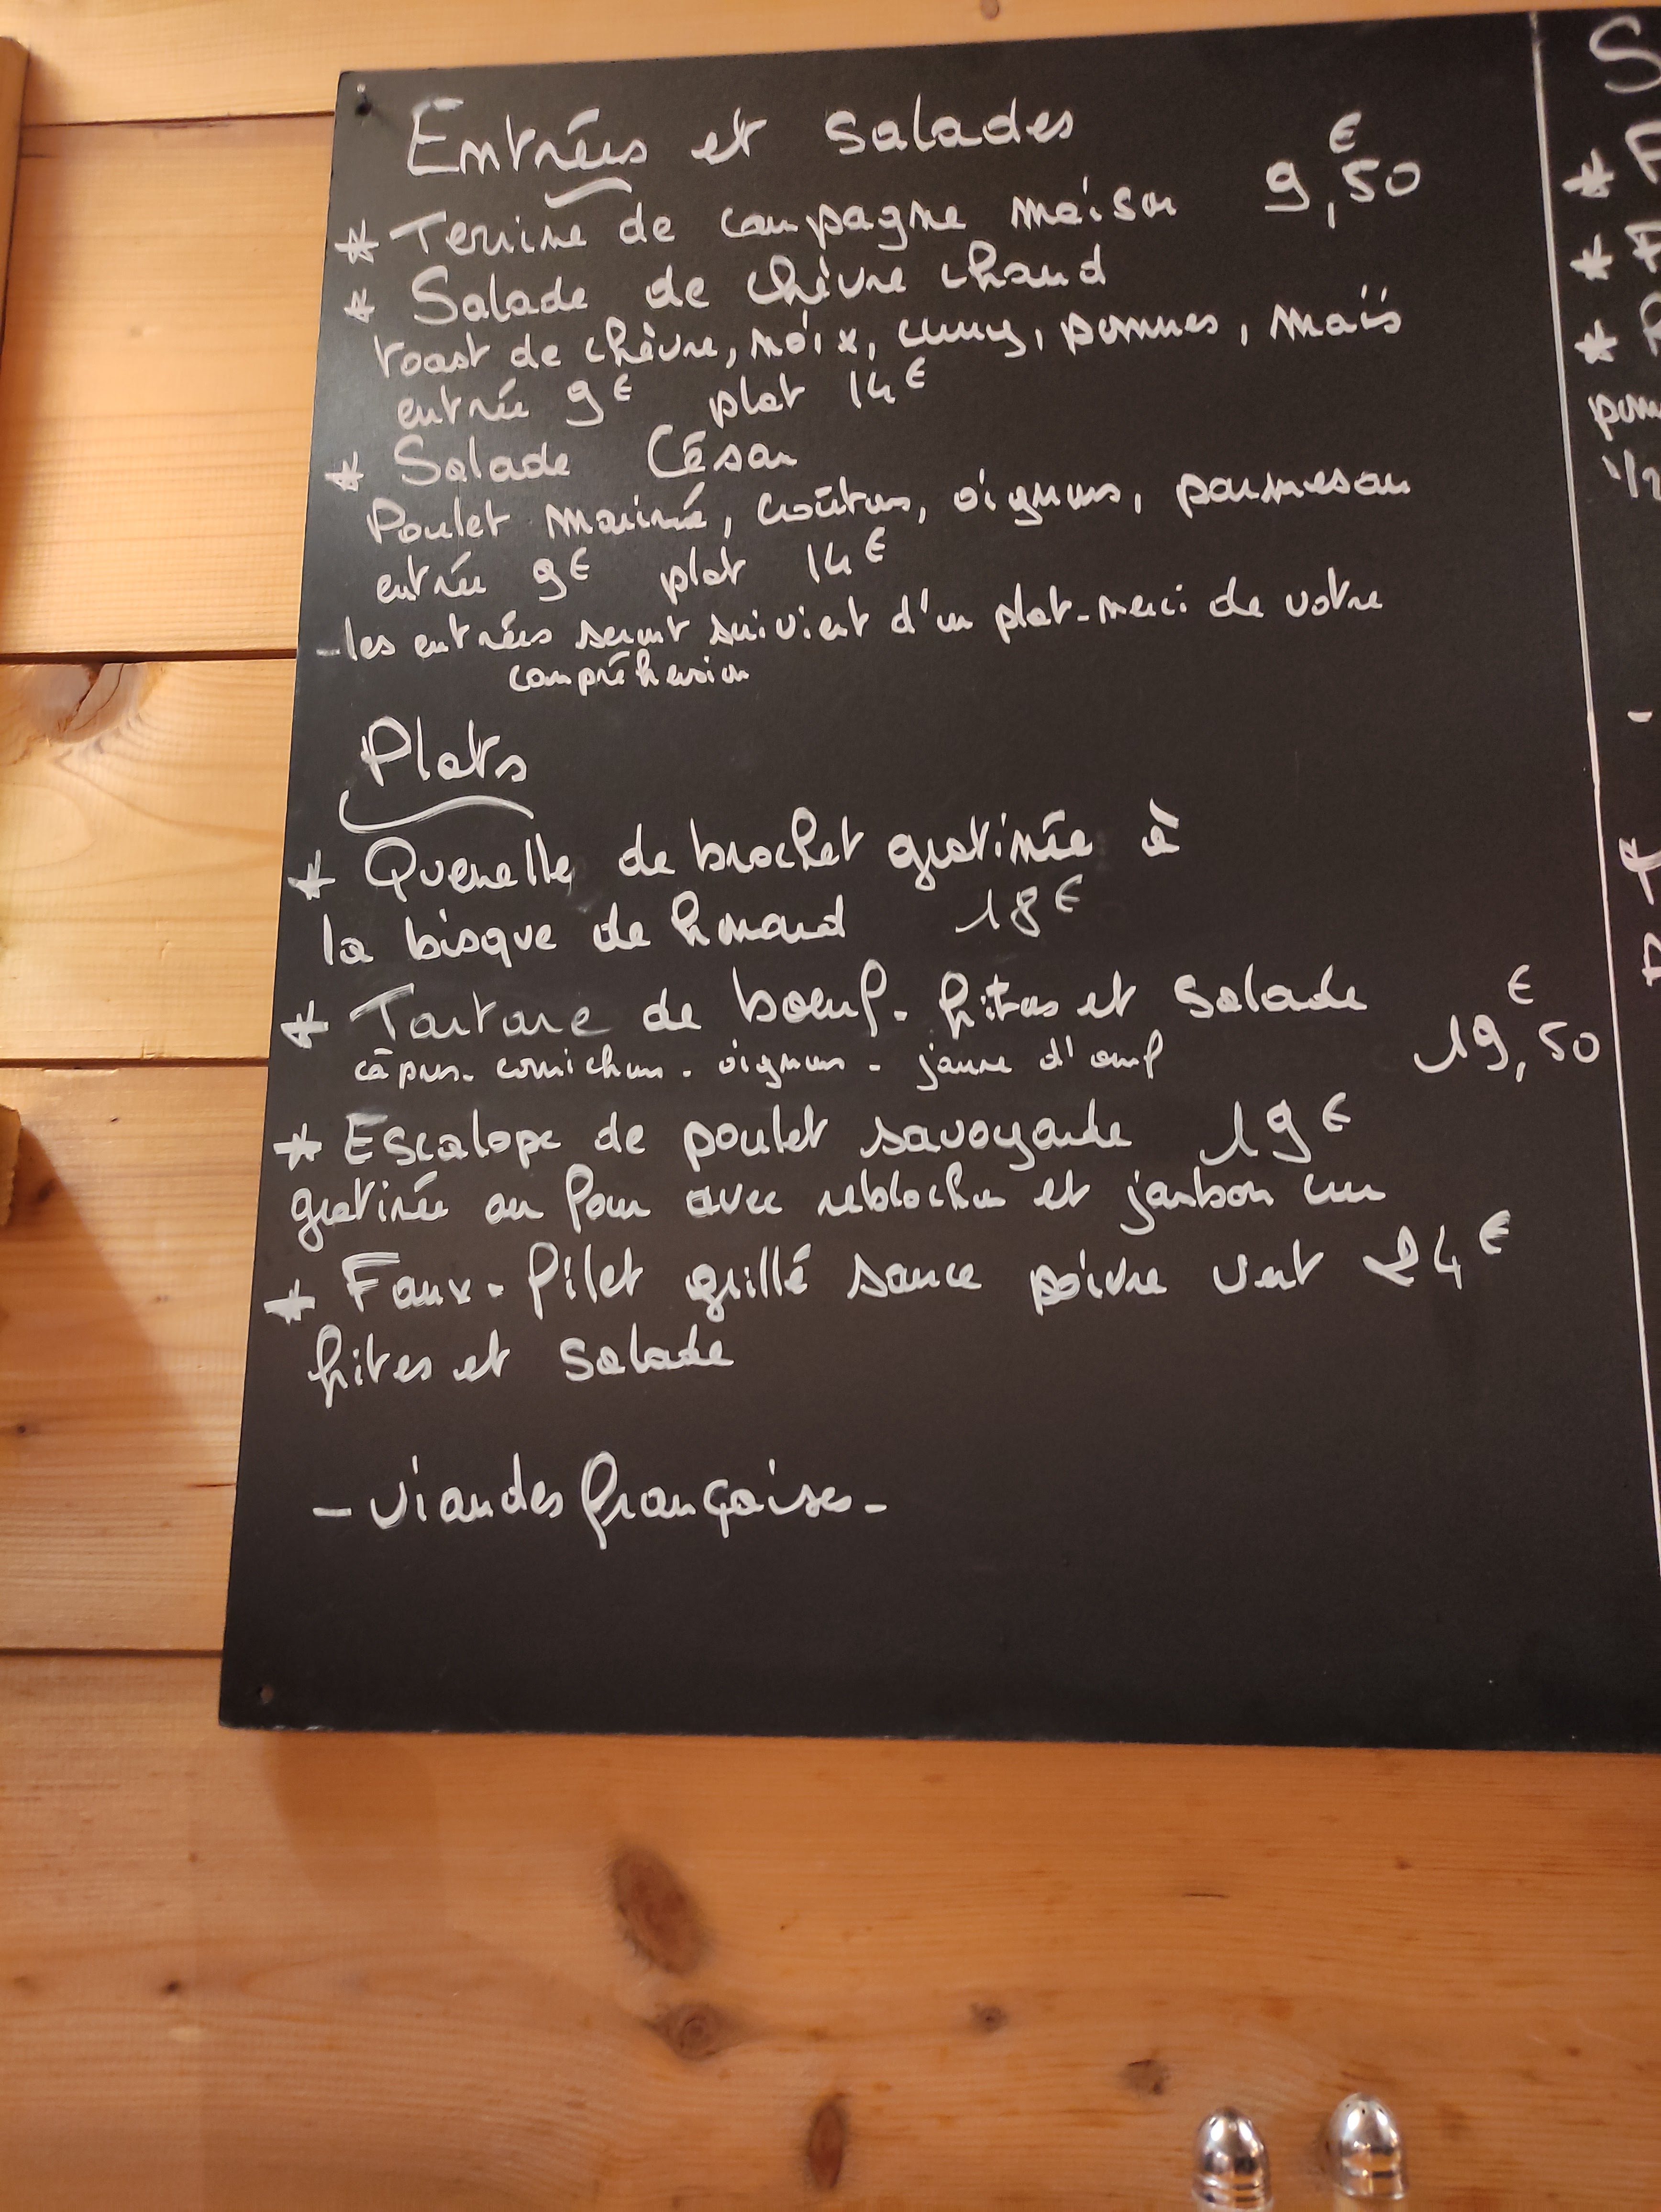 Entrées et Salades
* Terrine de campagne maison 9,50 €
* Salade de chèvre chaud
toast de chèvre, noix, curry, pommes, maïs
entrée 9€ plat 14€
* Salade César
Poulet mariné, croûtons, oignons, parmesan
entrée 9€ plat 14€
- les entrées seront suivient d'un plat - merci de votre
compréhension
Plats
* Quenelle de brochet gratinée à
la bisque de homard 18€
* Tartare de boeuf - frites et Salade
câpres - cornichons - oignons - jaune d'oeuf 19,50 €
* Escalope de poulet savoyarde 19€
gratinée au four avec reblochon et jambon cru
* Faux-filet grillé sauce poivre vert 24€
frites et Salade
- viandes françaises -
S
* F
*
*
pom
1/2
-